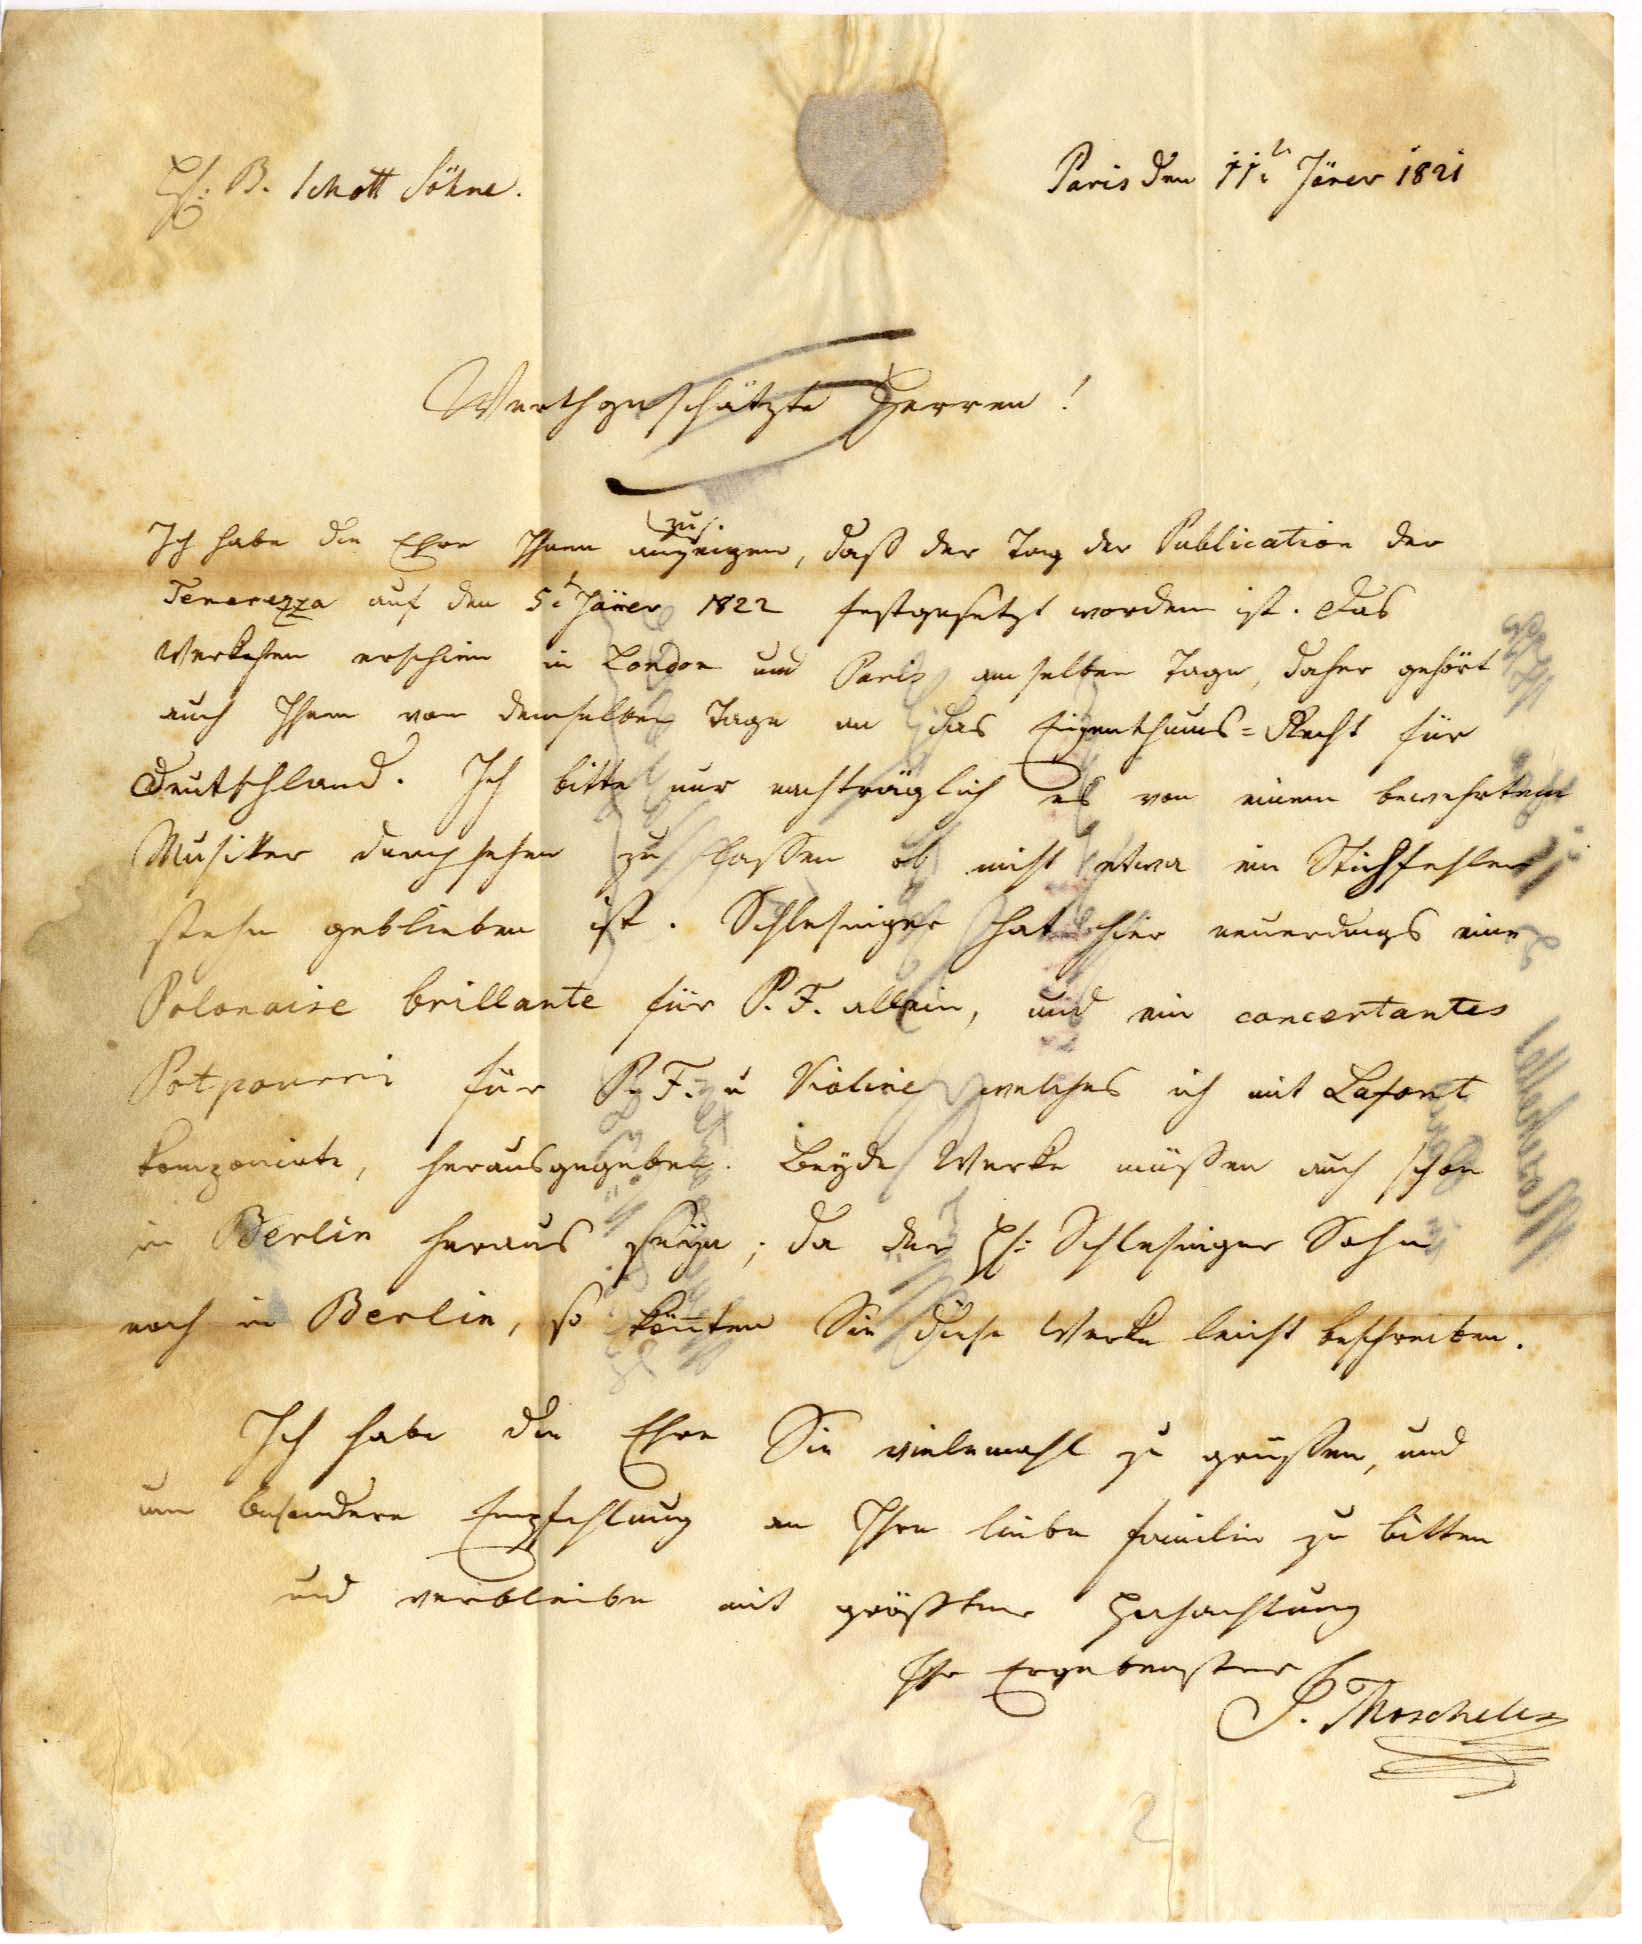 H: B. Schott Söhne.
Paris den 11t Jäner 1821
Werthgeschätzte Herren!
zus.
Ich habe die Ehre Ihnen anzeigen, daß der Tag der Publication der
Tenerezza auf den 5t Jäner 1822 festgesetzt worden ist. Das
Werkchen erschien in London und Paris am selben Tage, daher gehört
auch Ihnen von demselben Tage an das Eigenthums=Recht für
Deutschland. Ich bitte nur nachträglich es von einem bewehrten
Musiker durchsehen zu lassen ob nicht etwa ein Stichfehler
stehn geblieben ist. Schlesinger hat hier neuerdings eine
Polonaise brillante für P.F. allein, und ein concertantes
Potpourri für P.F. u Violine welches ich mit Lafont
komponirte, herausgegeben. Beyde Werke müßen auch schon
in Berlin heraus seyn; da der H: Schlesinger Sohn
noch in Berlin, so könnten Sie diese Werke leicht beschreiben.
Ich habe die Ehre Sie vielemahl zu grüßen, und
um besondere Empfehlung an Ihre liebe Familie zu bitten
und verbleibe mit größter Hochachtung
Ihr Ergebenster
J. Moscheles
2